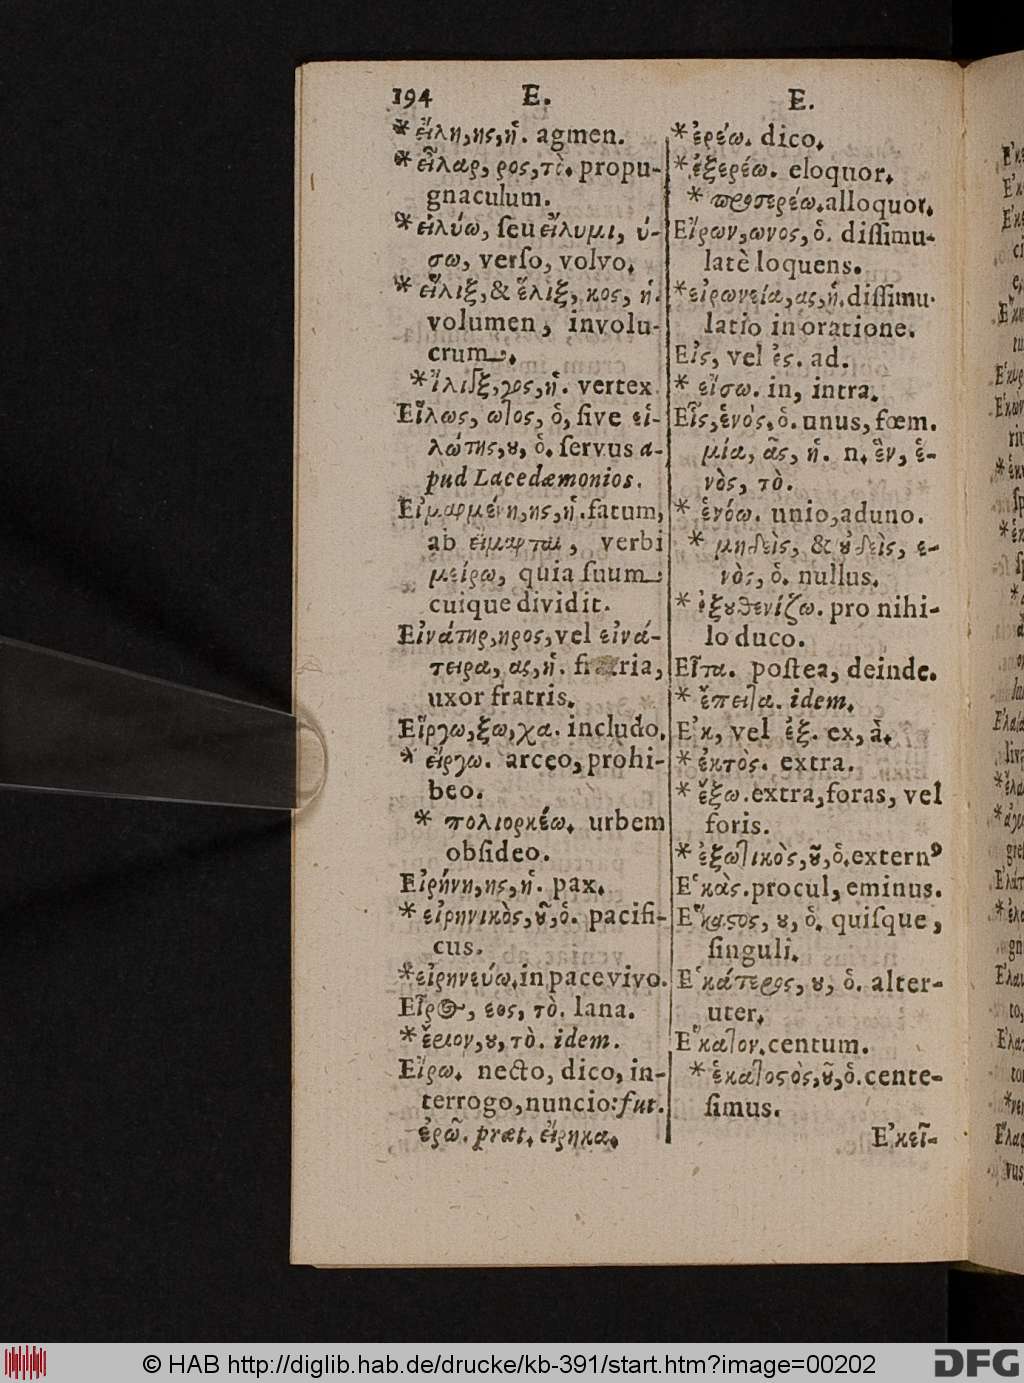 194 E. E.
*εἴλη,ης,ἡ. agmen.
*εἶλαρ, ρος,τὸ. propu-
gnaculum.
*εἰλύω, ſeu εἴλυμι, ύ-
σω, verſo, volvo.
*εἶλιξ,& ἕλιξ, κος, ἡ.
volumen, involu-
crum.
*ἴλιγξ,γος,ἡ. vertex
Εἵλως, ωτος, ὁ, ſive εἱ-
λώτης,ου, ὁ. ſervus a-
pud Lacedæmonios.
Εἱμαρμένη,ης,ἡ.fatum,
ab εἵμαρται, verbi
μείρω, quia ſuum
cuique dividit.
Εἰνάτηρ,ηρος,vel εἰνά-
τειρα, ας,ἡ. fratria,
uxor fratris.
Εἴργω,ξω,χα. includo.
* εἴργω. arceo, prohi-
beo.
* πολιορκέω. urbem
obſideo.
Εἰρήνη,ης,ἡ. pax.
*εἰρηνικὸς,οῦ,ὁ. pacifi-
cus.
*εἰρηνεύω.in pace vivo.
Εἶρος, εος, τὸ. lana.
*ἔριον,ου,τὸ. idem.
Εἴρω. necto, dico, in-
terrogo,nuncio:fut.
ἐρῶ. præt. εἴρηκα.
*ἐρέω. dico.
*ἐξερέω. eloquor.
* προσερέω.alloquor.
Εἴρων,ωνος,ὁ. diſſimu-
latè loquens.
*εἰρωνεία,ας,ἡ.diſſimu-
latio in oratione.
Εἰς, vel ἐς. ad.
* εἴσω. in, intra.
Εἷς,ἑνὸς.ὁ. unus, fœm.
μία, ᾶς, ἡ. n. ἓν, ἑ-
νὸς, τὸ.
* ἑνόω. unio,aduno.
* μηδεὶς, & οὐδεὶς, ε-
νὸς, ὁ. nullus.
* ἐξουθενίζω. pro nihi-
lo duco.
Εἶτα. poſtea, deinde.
* ἔπειτα. idem.
Ἐκ, vel ἐξ. ex, à.
*ἐκτὸς. extra.
*ἔξω.extra,foras, vel
foris.
*ἐξωτικὸς,οῦ,ὁ.externꝰ
Ἑκὰς.procul, eminus.
Ἕκαστος, ου, ὁ. quiſque,
ſinguli.
Ἑκάτερος, ου, ὁ. alter-
uter.
Ἕκατον.centum.
*ἑκατοστὸς,οῦ,ὁ.cente-
ſimus.
Ἐκεῖ-
© HAB http://diglib.hab.de/drucke/kb-391/start.htm?image=00202
DFG